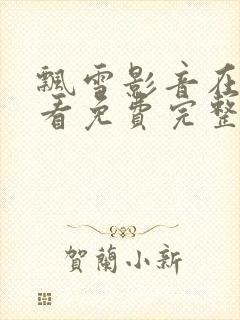 飄雪影音在
看免費完整
賀蘭小新